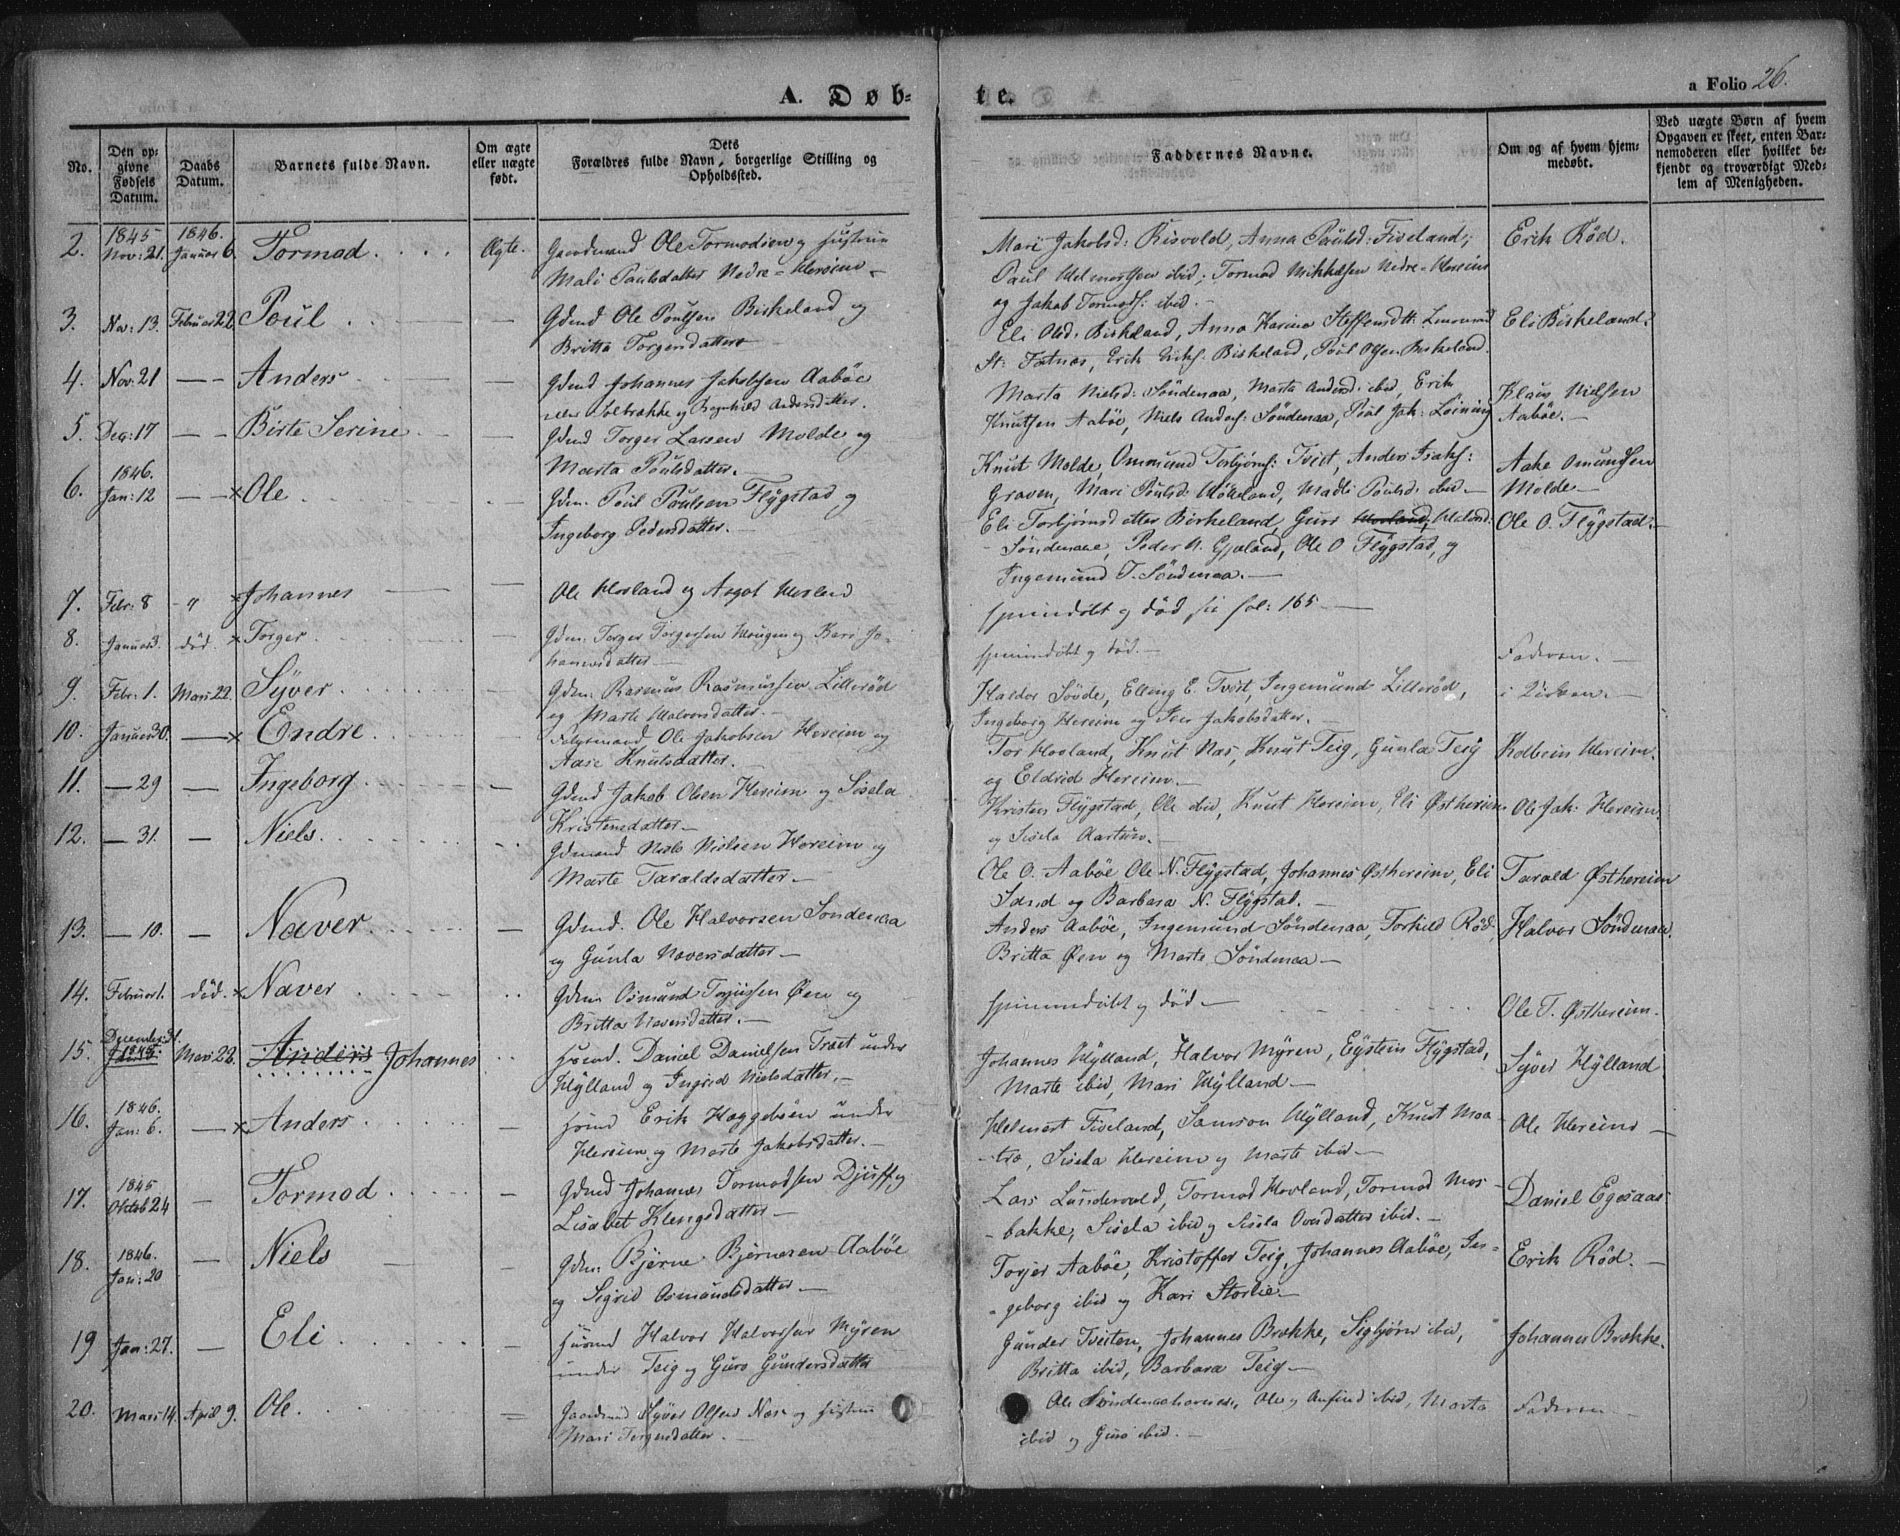 A. Døb-
te.
a Folio 26.
No.
Den op-
givne
Fødsels
Datum.
Daabs
Datum.
Barnets fulde Navn.
Om ægte
eller uægte
født.
Dets
Forældres fulde Navn, borgerlige Stilling og
Opholdssted.
Faddernes Navne.
Om og af hvem hjem-
medøbt.
Ved uægte Børn af hvem
Opgaven er skeet, enten Bar-
nemoderen eller hvilket be-
kjendt og troværdigt Med-
lem af Menigheden.
2. 1845 Nov: 21. 1846. Januar 6. Tormod. Ægte. Gaardmand Ole Tormodsen og Hustrue
Mali Paulsdatter Nedre-Hereim
Mari Jakobsd: Risvold, Anna Paulsd: Fiveland,
Paul Helmertsen ibid; Tormod Mikkelsen Nedre-Hereim
og Jakob Tormods: ibid.
Erik Rød.
3. Nov: 13. Februar 22. Poul. Gdmd Ole Poulsen Birkeland og
Britta Torgersdatter
Eli Olsd: Birkeland, Anna Karina Steffensdtt:
St: Fotnæs, Erik Eriks. Birkeland, Poul Olsen Birkeland.
Eli Birkeland.
4. Nov: 21 — Anders. Gdmd Johannes Jakobsen Aabøe
eller Solbrække og Ragnhild Andersdatter.
Marta Nielsd: Søndenaa, Marta Andersd: ibid, Erik
Knutsen Aabøe, Niels Anders: Søndenaa, Poul Jak: Leining
Klaus Nielsen
Aabøe.
5. Dec: 17 — Birte Serine Gdmd Torger Larsen Molde og
Marta Poulsdatter.
Knut Molde, Ommund Torbjørns: Tveit, Anders Isaks:
Graven, Mari Poulsd: Mökeland, Madli Poulsd: ibid
Aake Omundsen
Molde
6. 1846. Jan: 12 — × Ole. Gdm. Poul Poulsen Flÿgstad og
Ingeborg Pedersdatter.
Eli Torbjørnsdatter Birkeland, Guri Hovland, Haland:
Søndenaae, Peder A. Gjøland, Ole O Flÿgstad, og
Ingemund T. Søndenaa.
Ole O. Flÿgstad.
7. Febr: 8 " × Johannes Ole Hovland og Aagot Hovland
hjemmedøbt og død see fol: 165
8. Januar 3. død. × Torger. Gdm: Torger Torgersen Hougen og Kari Jo-
hannesdatter
hjemmedøbt og død.
Faderen.
9. Febr: 1. Mars 22. Sÿver. Gdm: Rasmus Rasmussen Lillerød
og Marte Halvorsdatter.
Haldor Søvde, Elling E. Tveit, Ingemund Lillerød,
Ingeborg Hereim og Siver Jakobsdatter.
i Kirken.
10. Januar 30. — × Endre. Ole Jakobsen Hereim og
Aase Knutsdatter.
Tor Hovland, Knut Næs, Knut Teig, Gunla Teig
og Eldrid Hereim.
Kolbein Hereim.
11. — 29 — Ingeborg. Gdmd Jakob Olsen Hereim og Sisela
Kristensdatter
Kristen Flÿgstad, Ole ibid, Knut Hereim, Eli Østhereim
og Sisela Aartun.
Ole Jak: Hereim.
12. — 31. — Niels. Gdmand Niels Nielsen Hereim og
Marte Taraldsdatter
Ole O. Aabøe Ole N. Flÿgstad, Johannes Østhereim, Eli
Sand og Barbara N. Flÿgstad.
Tarald Østhereim
13. — 10. — Naver. — Gdmd. Ole Halvorsen Søndenaa
og Gunla Naversdatter
Anders Aabøe, Ingemund Søndenaa, Torkild Rød,
Britta Øen og Marte Søndenaa
Halvor Søndenaa.
14. Februar 1. død. × Naver Gdm Osmund Torjussen Øen og
Britta Naversdatter.
hjemmedøbt og død
Ole T. Østhereim.
15. December 31. 1845. Mars 22. Anders Johannes Huusmd. Daniel Danielsen Træet under
Hÿlland og Ingrid Nielsdatter.
Johannes Hÿlland, Halvor Mÿren, Eÿstein Flÿgstad,
Marte ibid, Mari Hÿlland
Sÿver Hÿlland
16. 1846. Jan: 6. — × Anders. — Huusmd Erik Haggebøen under
Hereim og Marte Jakobsdatter.
Helmert Fiveland, Samson Hÿlland, Knut Maa-
trø, Sisela Hereim og Marte ibid
Ole Hereim
17. 1845 Oktob 24 — Tormod — Gdmd Johannes Tormodsen Djuff og
Lisabet Klengsdatter
Lars Lundevold, Tormod Hovland, Tormod Mos-
bakke, Sisela ibid og Sisela Oversdatter ibid.
Daniel Egesaas
18. 1846. Jan: 20 — Niels — Gdm: Bjerne Bjernesen Aabøe
og Sigrid Osmundsdatter
Torjer Aabøe, Kristoffer Teig, Johannes Aabøe, In-
geborg ibid og Kari Storlie
Erik Rød.
19 Jan: 27. — Eli. — Huusmd Halvor Halvorsen Mÿren
under Teig og Guro Gundersdatter
Gunder Tveiten, Johannes Brække, Sigbjørn ibid,
Britta ibid, Barbara Teig
Johannes Brække.
20. Mars 14. April 9. Ole. — Gaardmd Sÿver Olsen Næse og Hustrue
Mari Torgersdatter
Ole Søndenaahavnen, Ole og Anfind ibid, Marta
ibid og Guro ibid.
Faderen